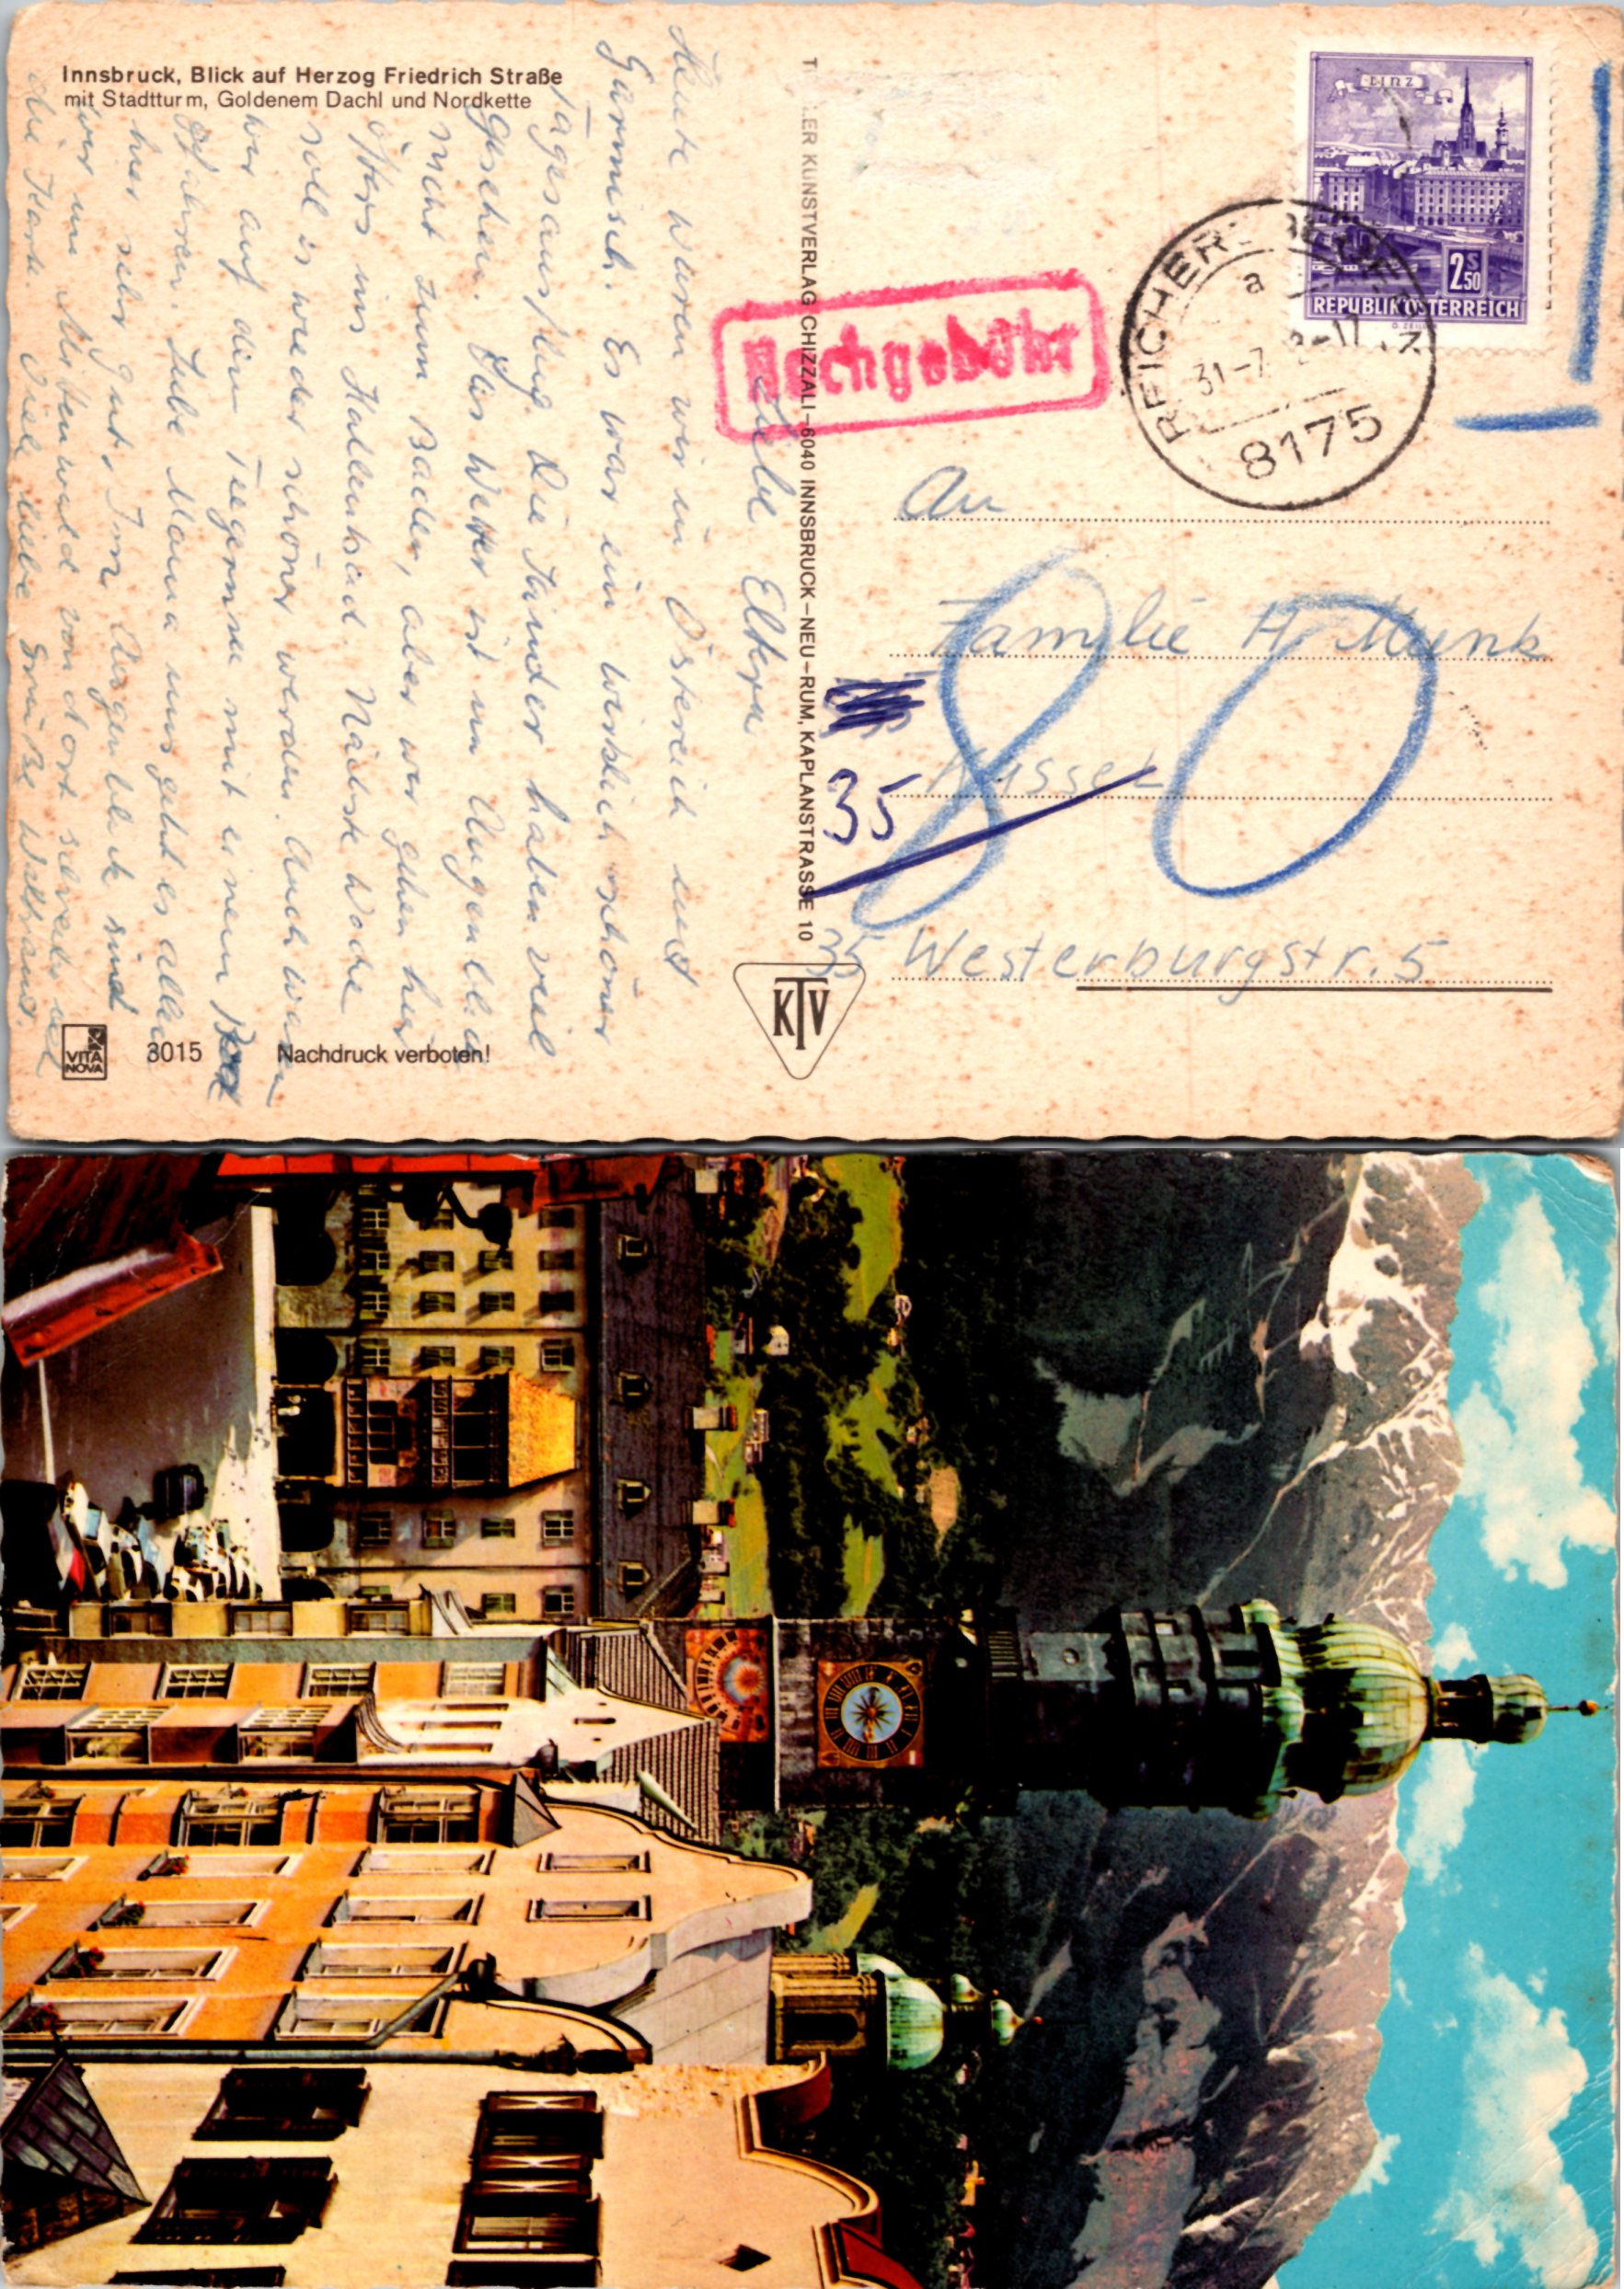 Innsbruck, Blick auf Herzog Friedrich Straße
mit Stadtturm, Goldenem Dachl und Nordkette
Liebe Eltern
Heute waren wir in Östereich und
Garmisch. Es war ein wirklich schöner
Tagesausflug. Die Kinder haben viel
gesehen. Das Wetter ist im Augenblick
nicht zum Baden, aber wir gehen hier
öfters ins Hallenbad. Nächste Woche
soll es wieder schöner werden. Auch waren
wir auf dem Tegernsee mit einem Boot
gefahren. Liebe Mama uns geht es allen
hier sehr gut. Im Augenblick sind
wir in Mittenwald von dort schreibe ich
die Karte. Viele liebe Grüße
T ER KUNSTVERLAG CHIZZALI–6040 INNSBRUCK–NEU–RUM, KAPLANSTRASSE 10
LINZ
2S 50
REPUBLIK ÖSTERREICH
REICHER
a
31-7 -17
8175
Nachgebühr
An
Familie H. Munk
35 Kassel
80
35 Westerburgstr. 5
KTV
VITA NOVA
3015
Nachdruck verboten!